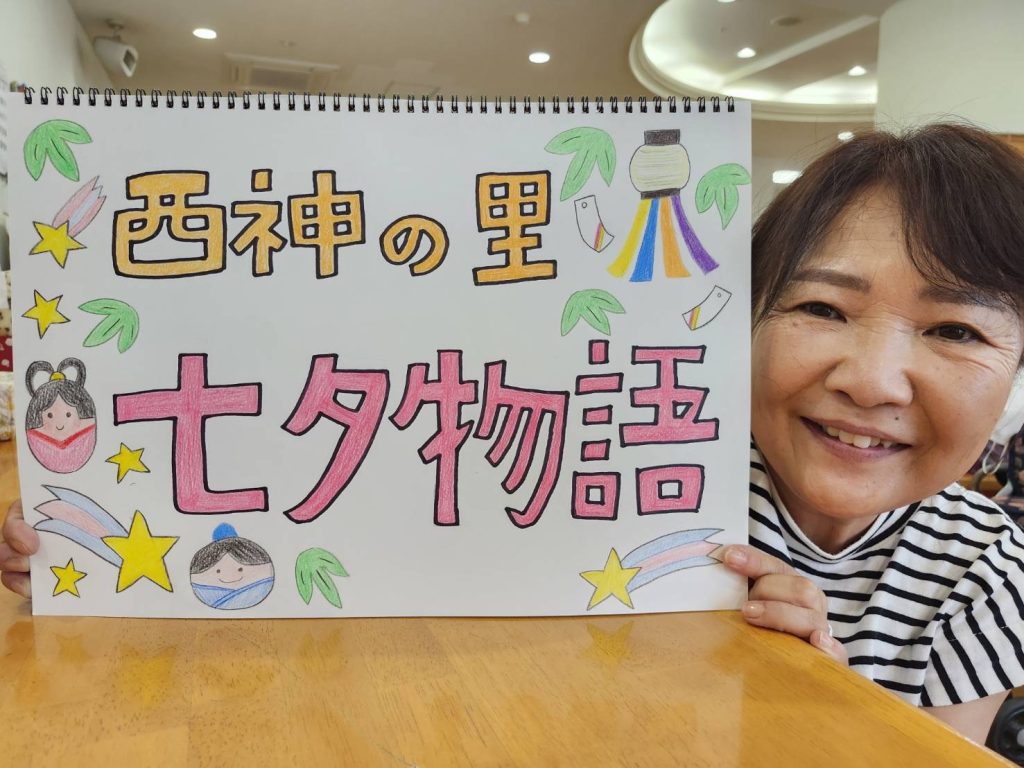 西神の里
七夕物語